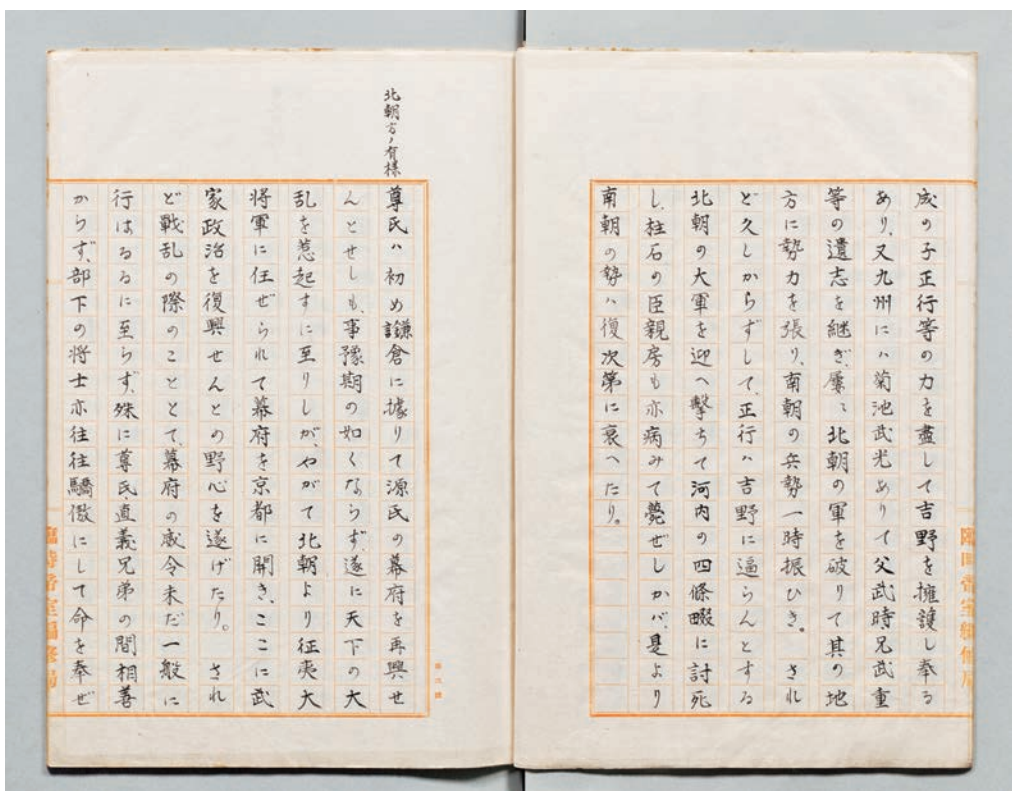 成の子正行等の力を盡して吉野を擁護し奉る
あり、又九州にハ菊池武光ありて父武時兄武重
等の遺志を継ぎ、屢〻北朝の軍を破りて其の地
方に勢力を張り、南朝の兵勢一時振ひき。されど
久しからずして、正行ハ吉野に逼らんとする
北朝の大軍を迎へ擊ちて河内の四條畷に討死
し、柱石の臣親房も亦病みて薨ぜしかバ、是より
南朝の勢ハ復次第に衰へたり。
北朝方ノ有様
尊氏ハ初め鎌倉に據りて源氏の幕府を再興せ
んとせしも、事豫期の如くならず、遂に天下の大
乱を惹起すに至りしが、やがて北朝より征夷大
将軍に任ぜられて幕府を京都に開き、ここに武
家政治を復興せんとの野心を遂げたり。されど
戰乱の際のこととて、幕府の威令未だ一般に
行はるるに至らず、殊に尊氏・直義兄弟の間相善
からず、部下の将士亦往往驕傲にして命を奉ぜ
臨時帝室編修局